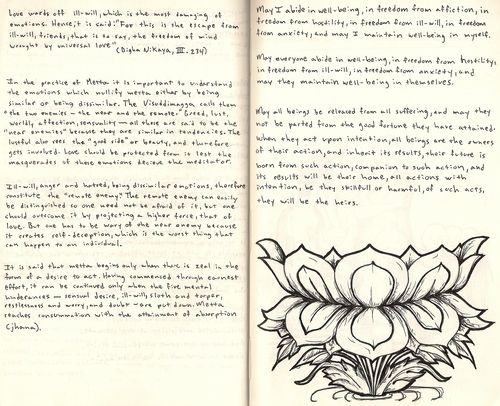 Love wards off ill-will, which is the most damaging of
emotions. Hence, it is said: "For this is the escape from
ill-will, friends, that is to say, the freedom of mind
wrought by universal love" (Digha Nikaya, III. 234)
In the practice of Metta it is important to understand
the emotions which nullify metta either by being
similar or being dissimilar. The Visuddimagga calls them
the two enemies — the near and the remote." Greed, lust,
worldly affection, sensuality — all these are said to be the
"near enemies" because they are similar in tendencies. The
lustful also sees the "good side" or beauty, and therefore
gets involved. Love should be protected from it lest the
masquerades of these emotions decieve the meditator.
Ill-will, anger and hatred, being dissimilar emotions, therefore
constitute the "remote enemy." The remote enemy can easily
be distinguished so one need not be afraid of it, but one
should overcome it by projecting a higher force, that of
love. But one has to be wary of the near enemy because
it creates self-deception, which is the worst thing that
can happen to an individual.
It is said that metta begins only when there is zeal in the
form of a desire to act. Having commensed through earnest
effort, it can be continued only when the five mental
hinderances — sensual desire, ill-will, sloth and torpor,
restlessness and worry, and doubt — are put down. Metta
reaches consummation with the attainment of absorption
(jhana).
May I abide in well-being, in freedom from affliction, in
freedom from hostility, in freedom from ill-will, in freedom
from anxiety, and may I maintain well-being in myself.
May everyone abide in well-being, in freedom from hostility,
in freedom from ill-will, in freedom from anxiety, and
may they maintain well-being in themselves.
May all beings be released from all suffering, and may they
not be parted from the good fortune they have attained.
When they act upon intention, all beings are the owners
of their action, and inherit its results, their future is
born from such action, companion to such action, and
its results will be their home, all actions with
intention, be they skillful or harmful, of such acts,
they will be the heirs.